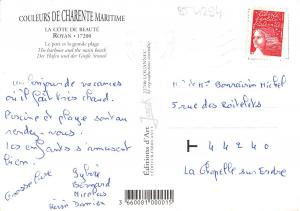 COULEURS DE CHARENTE MARITIME
LA CÔTE DE BEAUTÉ
ROYAN • 17200
Le port et la grande plage
The harbour and the main beach
Der Hafen und der Große Strand
un bonjour de vacances
où il fait très chaud.
Piscine et plage sont au
rendez-vous.
Les enfants s'amusent
bien.
Grosses bises
Sylvie
Bernard
Nicolas
Damien
Editions d'Art
3 660081 000015
Mr & Me Bonraisin Michel
5 rue des Roitelets
44240
La Chapelle sur Erdre